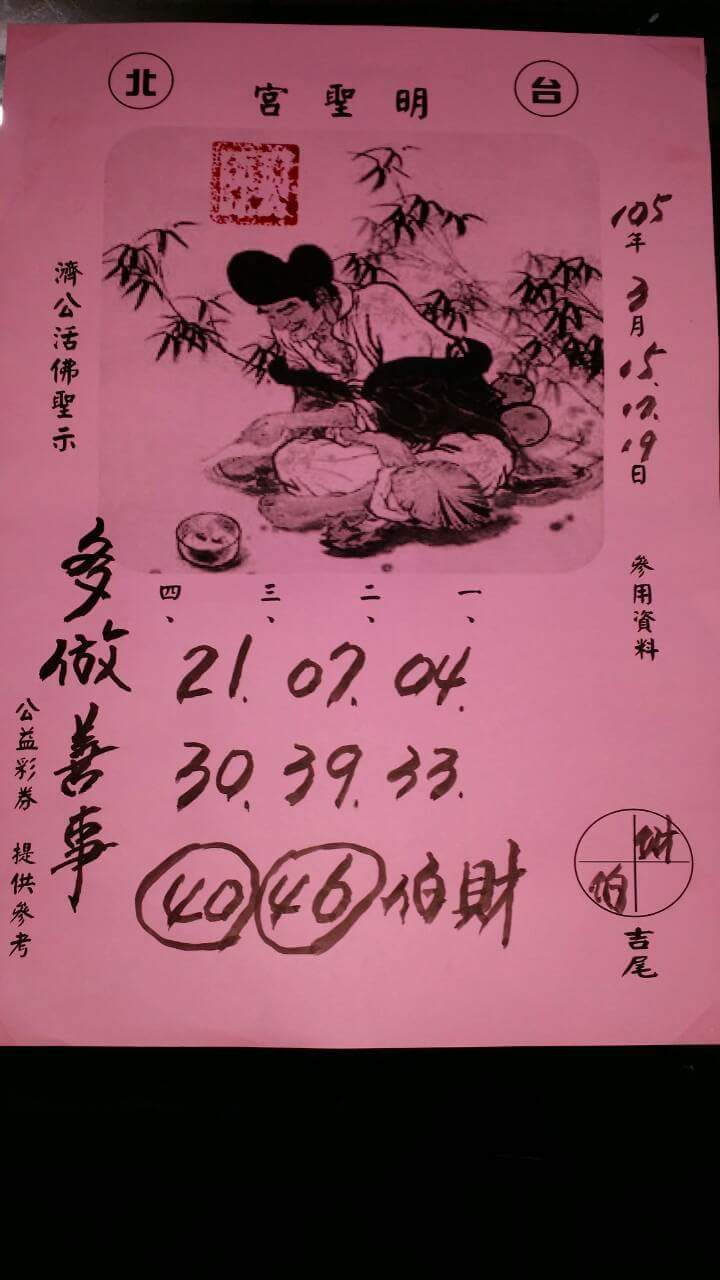 台北
明聖宮
105年3月15.17.19日
參用資料
濟公活佛聖示
一、二、三、四、
04.07.21.
33.39.30.
伯財 46 40
財
伯
吉尾
多做善事
公益彩券 提供參考